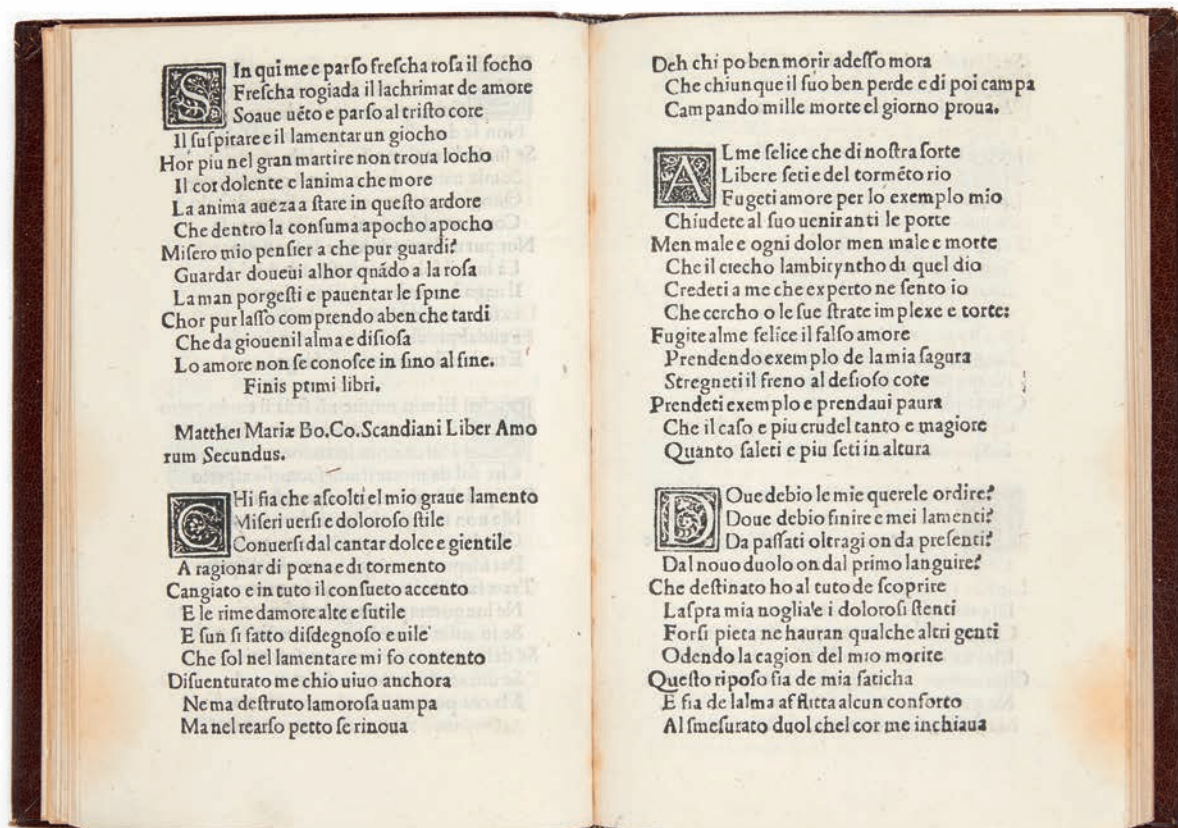 SIn qui me e parſo freſcha roſa il focho
Freſcha rogiada il lachrimar de amore
Soaue uẽto e parſo al triſto core
Il ſuſpirare e il lamentar un giocho
Hor piu nel gran martire non troua locho
Il cor dolente e lanima che more
La anima aueza a ſtare in queſto ardore
Che dentro la conſuma apocho apocho
Miſero mio penſier a che pur guardi?
Guardar doueui alhor quãdo a la roſa
La man porgeſti e pauentar le ſpine
Chor pur laſſo comprendo aben che tardi
Che da giouenil alma e diſioſa
Lo amore non ſe conoſce in ſino al fine.
Finis primi libri.
Matthei Mariæ Bo.Co.Scandiani Liber Amo
rum Secundus.
CHi fia che aſcolti el mio graue lamento
Miſeri uerſi e doloroſo ſtile
Conuerſi dal cantar dolce e gientile
A ragionar di pœna e di tormento
Cangiato e in tuto il conſueto accento
E le rime damore alte e ſutile
E ſun ſi fatto diſdegnoſo e uile
Che ſol nel lamentare mi fo contento
Diſuenturato me chio uiuo anchora
Ne ma deſtruto lamoroſa uampa
Ma nel rearſo petto ſe rinoua
Deh chi po ben morir adeſſo mora
Che chiunque il ſuo ben perde e di poi campa
Campando mille morte el giorno proua.
ALme felice che di noſtra ſorte
Libere ſeti e del tormẽto rio
Fugeti amore per lo exemplo mio
Chiudete al ſuo uenir anti le porte
Men male e ogni dolor men male e morte
Che il ciecho lambiryntho di quel dio
Credeti a me che experto ne ſento io
Che cercho o le ſue ſtrate implexe e torte:
Fugite alme felice il falſo amore
Prendendo exemplo de la mia ſagura
Stregneti il freno al deſioſo core
Prendeti exemplo e prendaui paura
Che il caſo e piu crudel tanto e magiore
Quanto ſaleti e piu ſeti in altura
DOue debio le mie querele ordire?
Doue debio finire e mei lamenti?
Da paſſati oltragi on da preſenti?
Dal nouo duolo on dal primo languire?
Che deſtinato ho al tuto de ſcoprire
Laſpra mia noglia e i doloroſi ſtenti
Forſi pieta ne hauran qualche altri genti
Odendo la cagion del mio morire
Queſto ripoſo ſia de mia faticha
E fia de lalma afflitta alcun conforto
Al ſmeſurato duol chel cor me inchiaua